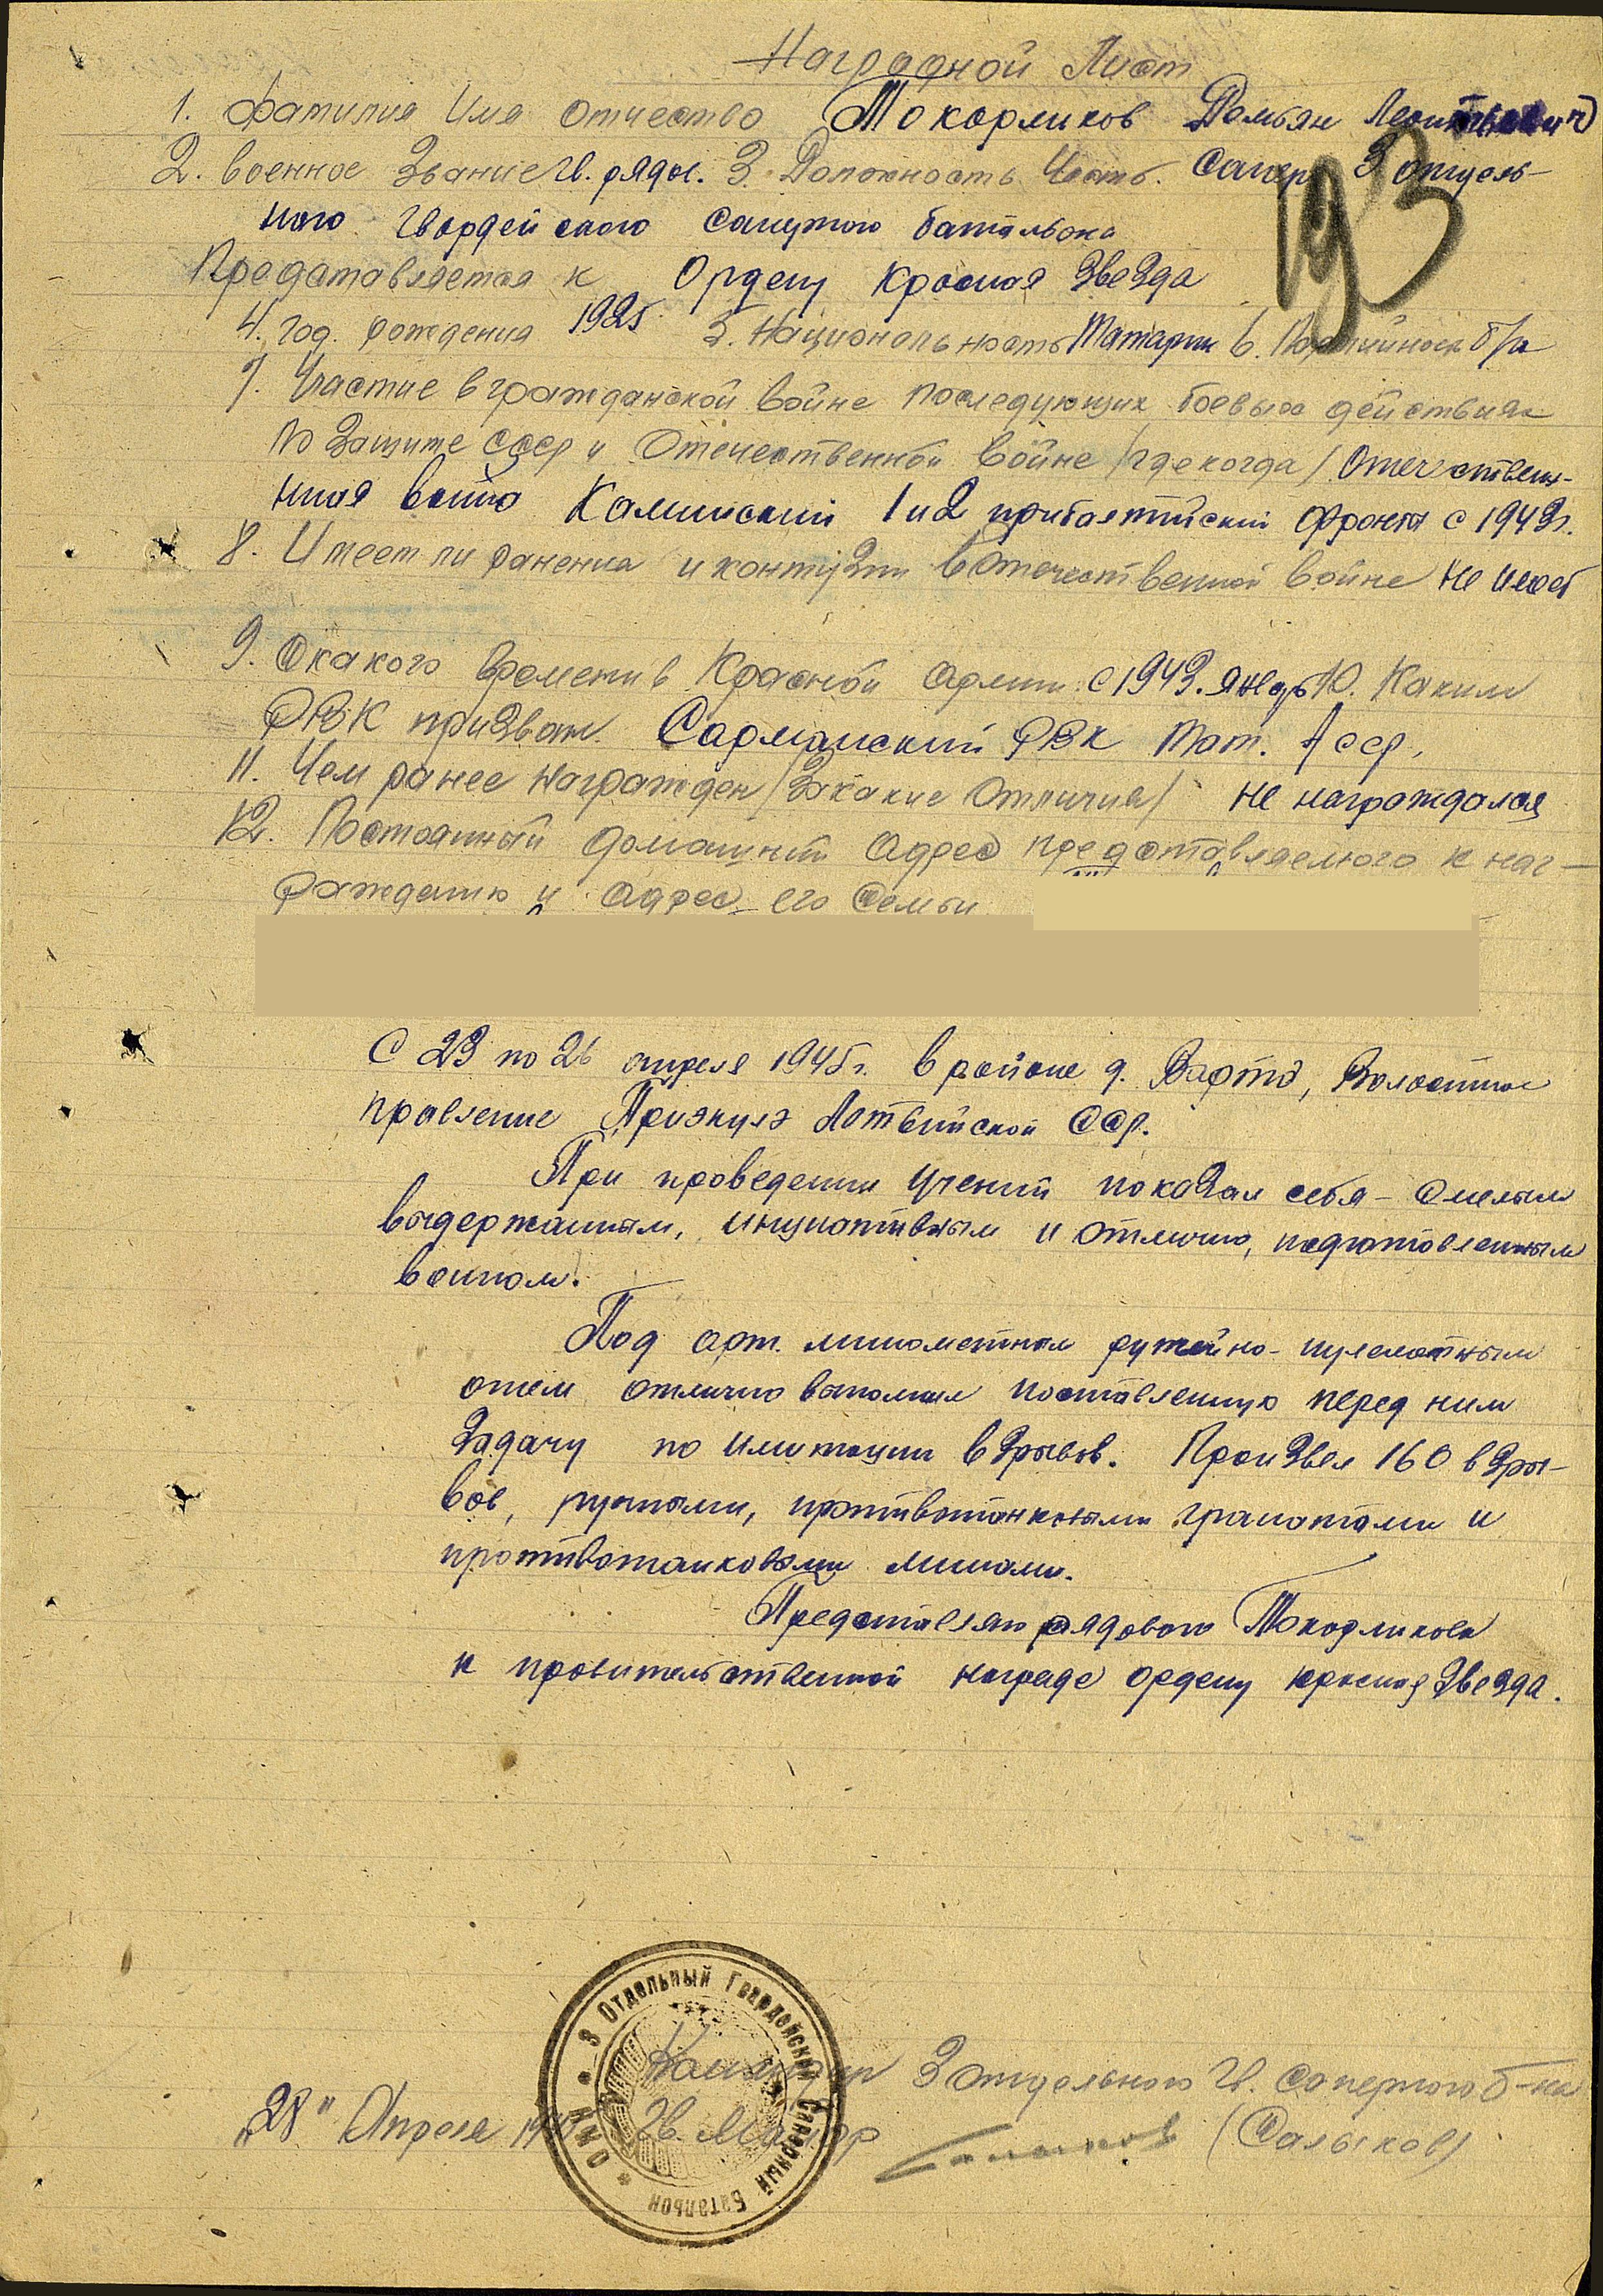 Наградной Лист
1. Фамилия Имя Отчество Токарликов Демьян Леонтьевич
193
2. Военное Звание Гв. рядов. 3. Должность Часть. Сапер 3 отдель-
ного Гвардейского Саперного батальона
Представляется к Ордену Красная Звезда
4. Год. рождения 1925 5. Национальность Татарин 6. Партийность б/п
7. Участие в гражданской войне последующих боевых действиях
по защите СССР и Отечественной войне /где когда/ Отечествен-
ная война Калининский 1 и 2 прибалтийский фронта с 1943г.
8. Имеет ли ранения и контузии в Отечественной войне не имеет
9. С какого времени в Красной Армии с 1943. январь 10. Каким
РВК призван. Сармановский РВК Тат. Асср.
11. Чем ранее награжден /за какие отличия/ не награждался
12. Постоянный домашний адрес представляемого к наг-
раждению и адрес его семьи
С 23 по 26 апреля 1945г. в районе д. Вартэ, Волостное
правление Приэкулэ Латвийской ССР.
При проведении учений показал себя - смелым
выдержанным, инициативным и отлично, подготовленным
воином.
Под арт. минометным ружейно-пулеметным
огнем отлично выполнил поставленную перед ним
задачу по имитации взрывов. Произвел 160 взры-
вов, ручными, противотанковыми гранатами и
противотанковыми минами.
Представляю рядового Токарликова
к правительственной награде ордену красная Звезда.
3 Отдельный Гвардейский Саперный Батальон
Командир 3 отдельного Гв. Саперного б-на
"28" Апреля 1945 Гв. Майор Салыков (Салыков)